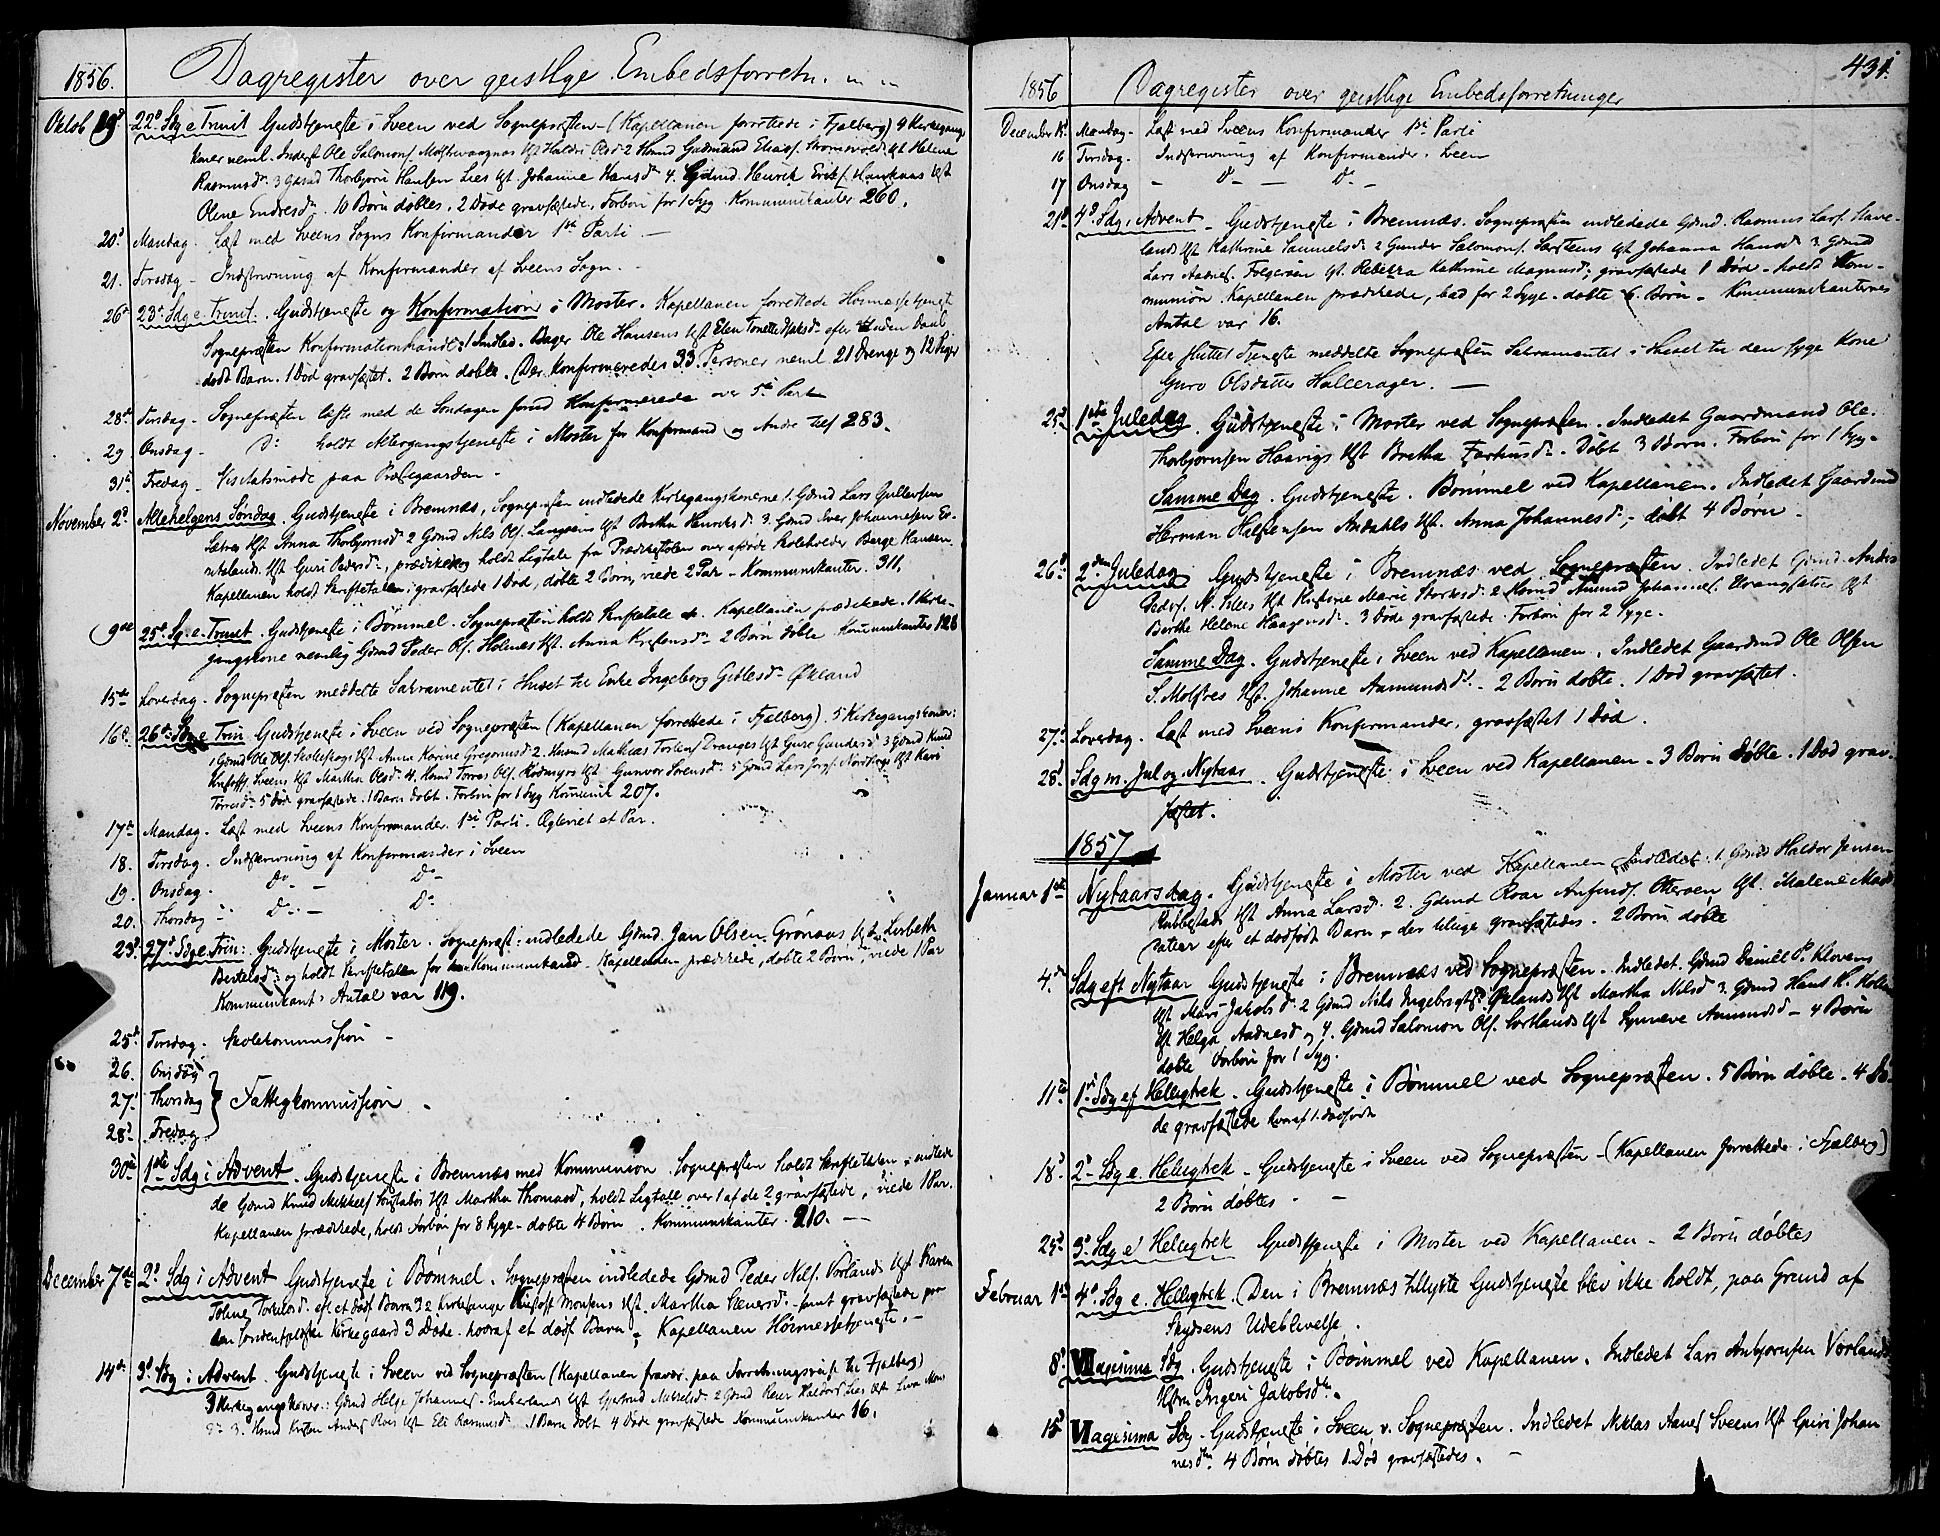 1856. Dagregister over geistlige Embedsforretn.
Oktob 19d 22d Sdg e Trinit Gudstjeneste i Sveen ved Sognepræsten - (Kapellanen forrettede i Fjelberg) 4 Kirkegangs
koner neml. Inderst Ole Salomons. Hst 2 Hmd Gudmund Eliass. Hst Helene
Rasmusd. 3 Thorbjørn Hansen Lies Hst Johanne Hansd. 4. Gdmd. Henrik Eriks. Hst
Olene Endresd. 10 Børn døbtes, 2 Døde gravfæstede, Forbøn for 1 Syg. Kommunikanter 260.
20d Mandag. Læst med Sveens Sogns Konfirmander 1ste Parti -
21. Tirsdag - Indskrivning af Konfirmander af Sveens Sogn.
26d 23d Sdg e. Trinit. Gudstjeneste og Konfirmation i Moster. Kapellanen forrettede Høimessetjeneste
Sognepræsten Konfirmationshandl. 1 Indled. Ole Hansens Hst Elen Tonette efter et uden Daab
dødt Barn. 1 Død gravfæstet. 2 Børn døbte. (Der konfirmeredes 33 Personer neml 21 Drenge og 12 Piger
28d Tirsdag - Sognepræsten læste med de Søndagen forud Konfirmerede over 5te Part
29 Onsdag - D: holdt Altergangstjeneste i Moster for Konfirmand og Andre Tils 283.
31d Fredag - paa Præstegaarden -
November 2d Allehelgens Søndag. Gudstjeneste i Bremnæs, Sognepræsten indledede Kirkegangskonerne 1. Gdmd Lars Gullersen
Hst Anna Thorbjørnsd. 2 Gdmd Nils Ols. Hst Bertha Henriksd. 3. Gdmd Iver Johannesen
Hst Guri Pedersd., prædikede og holdt Ligtale fra Prædikestolen over afdøde Skoleholder Børge Hansen.
Kapellanen holdt Skriftetalen, gravfæstede 1 Død, døbte 2 Børn, viede 2 Par - Kommunikanter. 311.
9de 25d S. e. Trinit. Gudstjeneste i Bømmel. Sognepræsten holdt Skriftetale. Kapellanen prædikede. 1 Kirke-
gangskone nemlig Gdmd Peder Ols. Holmes Hst. Anna 2 Børn døbte Kommunikanter 128
15de Løverdag. Sognepræsten meddelte Sakramentet i Huset til Enke Ingeborg Økland
16d 26d Sdg e Trin Gudstjeneste i Sveen ved Sognepræsten (Kapellanen forrettede i Fjelberg). 5 Kirkegangskoner:
1 Gdmd Ole Ols. Hst Anna Karine Gregoriusd 2. Husmd Mathias Hst Guro Gundersd 3 Gdmd Knud
Sveens Hst Martha Olsd. 4. Hmd Tørres Ols. Hst Gunvor Sørensd 5 Gdmd Lars Hst Kari
Tørresd. 5 Døde gravfæstede. 1 Barn døbt. Forbøn for 1 Syg Komunik 207.
17de Mandag. Læst med Sveens Konfirmander. 1ste Parti. Ægteviet et Par.
18. Tirsdag. Indskrivning af Konfirmander i Sveen
19. Onsdag. Do - Do -
20. Thorsdag - Do - Do
23d 27d Sdg e Trin: Gudstjeneste i Moster. Sognepræst: indledede Gdmd. Jan Olsen Grønaas Hst Lisbeth
Bertelsd. og holdt Skriftetalen for Kommunikand. Kapellanen prædikede, døbte 2 Børn, viede 1 Par
Kommunikant: Antal var 119.
25d Tirsdag. Skolekommission -
26. Onsdag
27. Thorsdag } Fattigkommission
28d. Fredag
30te 1ste Sdg i Advent. Gudstjeneste i Bremnæs med Kommunion. Sognepræsten holdt Skriftetalen, indlede
de Gdmd Knud Mikkels. Hst Martha Thomasd, holdt Ligtale over 1 af de 2 gravfæstede, viede 1 Par.
Kapellanen prædikede, holdt Forbøn for 8 Syge - døbte 4 Børn. Kommunikanter. 210. -
December 7de 2d Sdg i Advent Gudstjeneste i Bømmel. Sognepræsten indledede Gdmd Peder Nils. Vorlands Hst Karen
eft et dødf Barn og 2 Monsens Hst. Martha - samt gravfæstede paa
Kirkegaard 3 Døde. hvoraf et dødf Barn. Kapellanen Høimessetjeneste. -
14de 3d Sdg i Advent. Gudstjeneste i Sveen ved Sognepræsten (Kapellanen fravær. paa Forretningsreise til Fjelberg)
3 Kirkegangskoner: Gdmd Helge Johannes. Hst Gjertrud Mikkelsd. 2 Gdmd Hst
3. Hmd Hst Eli Rasmusd. 1 Barn døbt 4 Døde gravfæstede Kommunikanter 16.
431.
1856 Dagregister over geistlige Embedsforretninger
December 15. Mandag - Læst med Sveens Konfirmander 1ste Parti
16 Tirsdag. Indskrivning af Konfirmander. Sveen
17 Onsdag - D - - D -
21d 4d Sdg i Advent - Gudstjeneste i Bremnæs. Sognepræsten indledede Gdmd. Rasmus Lars.
lands Hst Kathrine Samuelsd. 2 Gunder Salomons. Hst Johanna Hansd 3. Gdmd
Lars Folgerøen Hst. Rebecka Kathrine Magnusd; gravfæstede 1 Død - holdt Kom-
munion. Kapellanen prædikede, bad for 2 Syge - døbte 6 Børn. - Kommunikanternes
Antal var 16.
Efter sluttet Tjeneste meddelte Sognepræsten Sakramentet i Huset til den syge Kone
Guro Olsdatter Hallerager. -
25d 1ste Juledag. Gudstjeneste i Moster ved Sognepræsten. Indledet Gaardmand Ole
Thorbjørnsen Haavigs Hst Bertha Døbt 3 Børn. Forbøn for 1 Syg.
Samme Dag. Gudstjeneste. Bømmel ved Kapellanen. Indledet Gaardmd
Herman Halstensen Andahls Hst. Anna Johannesd. - døbt 4 Børn.
26d 2den Juledag Gudstjeneste i Bremnæs ved Sognepræsten. Indledet Gdmd. Anders
Peders. N. Hst Marie 2 Hmd Amund Johannes. Hst
Berthe Helene Haagensd. 3 Døde gravfæstede. Forbøn for 2 Syge.
Samme Dag. Gudstjeneste i Sveen ved Kapellanen. Indledet Gaardmd Ole Olsen
Hst. Johanne Aamundsd. - 2 Børn døbte. 1 Død gravfæstet.
27d Løverdag. Læst med Sveens Konfirmander, gravfæstet 1 Død.
28d Sdg m. Jul og Nytaar. Gudstjeneste i Sveen ved Kapellanen - 3 Børn døbte. 1 Død grav-
fæstet.
1857
Januar 1ste Nytaarsdag. Gudstjeneste i Moster ved Kapellanen Indledet: 1. Gdmd Haldor Jensen
Rubbestads Hst Anna Larsd. 2. Gdmd Roar Otterøen Hst. Malene
efter et dødfødt Barn - der tillige gravfæstedes. 2 Børn døbte
4de Sdg eft Nytaar Gudstjeneste i Bremnæs ved Sognepræsten. Indledet. Gdmd Daniel P. Klovens
Hst Mari Jakobsd. 2 Gdmd Nils Ingebrigts. Hst Martha Nilsd 3. Gdmd Hans K.
Hst Helga Aadnesd og 4. Gdmd Salomon Ols. Sortlands Hst Synneve Aamundsd - 4 Børn
døbte Forbøn for 1 Syg.
11te 1d Sdg ef Helligtrek. Gudstjeneste i Bømmel ved Sognepræsten. 5 Børn døbte. 4 Dø-
de gravfæstede hvoraf 1. dødfødt
18d 2d Sdg e. Helligtrek - Gudstjeneste i Sveen ved Sognepræsten - (Kapellanen forrettede i Fjelberg)
2 Børn døbtes -
25d 3d Sdg e Helligtrek Gudstjeneste i Moster ved Kapellanen - 2 Børn døbtes
Februar 1ste 4d Sdg e. Helligtrek. (Den i Bremnæs tillyste Gudstjeneste blev ikke holdt, paa Grund af
Skydsens Udeblivelse.
8d Sdg. Gudstjeneste i Bømmel ved Kapellanen. Indledet Lars Anbjørnsen Vorlands
Hstru Ingeri Jakobsdtr.
15d Sdg - Gudstjeneste i Sveen v. Sognepræsten. Indledet Niklas Sveens Hst Guri Johan
nesdtr 4 Børn døbtes 1 Død gravfæstedes. -